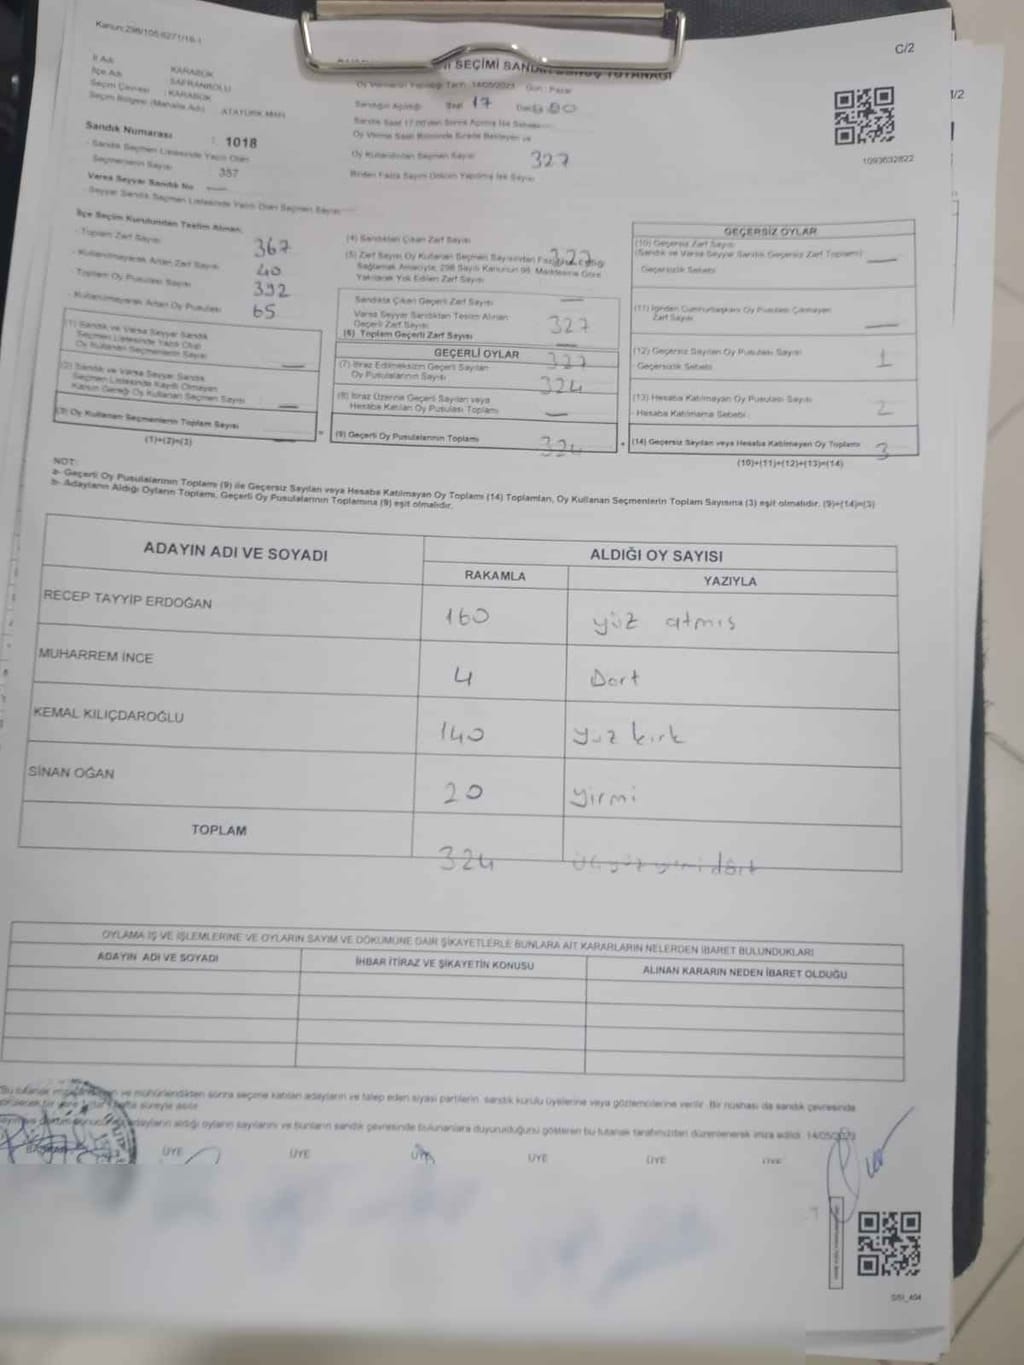 Kanun:298/105-6271/16-1
C/2
SEÇİMİ SANDIK SONUÇ TUTANAĞI
İl Adı : KARABÜK
İlçe Adı : SAFRANBOLU
Seçim Çevresi : KARABÜK
Seçim Bölgesi (Mahalle Adı) : ATATÜRK MAH.
Oy Vermenin Yapıldığı Tarih: 14/05/2023 Gün: Pazar
Sandığın Açıldığı Saat 17 Dakika 00
Sandık Numarası : 1018
- Sandık Seçmen Listesinde Yazılı Olan
Seçmenlerin Sayısı : 357
Oy Kullandıran Seçmen Sayısı 327
Birden Fazla Sayım Döküm Yapılmış ise Sayısı
Varsa Seyyar Sandık No —
- Seyyar Sandık Seçmen Listesinde Yazılı Olan Seçmen Sayısı
1093632822
1/2
İlçe Seçim Kurulundan Teslim Alınan;
- Toplam Zarf Sayısı 367
- Kullanılmayarak Artan Zarf Sayısı 40
- Toplam Oy Pusulası Sayısı 392
- Kullanılmayarak Artan Oy Pusulası 65
(1) Sandık ve Varsa Seyyar Sandık
Seçmen Listesinde Yazılı Olup
Oy Kullanan Seçmenlerin Sayısı —
(2) Sandık ve Varsa Seyyar Sandık
Seçmen Listesinde Kayıtlı Olmayan
Kanun Gereği Oy Kullanan Seçmen Sayısı —
(3) Oy Kullanan Seçmenlerin Toplam Sayısı
(1)+(2)=(3)
(4) Sandıktan Çıkan Zarf Sayısı 327
(5) Zarf Sayısı Oy Kullanan Seçmen Sayısından Fazla
Sağlamak Amacıyla, 298 Sayılı Kanunun 98. Maddesine Göre
Yakılarak Yok Edilen Zarf Sayısı —
Sandıkta Çıkan Geçerli Zarf Sayısı 327
Varsa Seyyar Sandıktan Teslim Alınan
Geçerli Zarf Sayısı —
(6) Toplam Geçerli Zarf Sayısı 327
GEÇERLİ OYLAR
(7) İtiraz Edilmeksizin Geçerli Sayılan
Oy Pusulalarının Sayısı 324
(8) İtiraz Üzerine Geçerli Sayılan veya
Hesaba Katılan Oy Pusulası Toplamı —
(9) Geçerli Oy Pusulalarının Toplamı 324
GEÇERSİZ OYLAR
(10) Geçersiz Zarf Sayısı
(Sandık ve Varsa Seyyar Sandık Geçersiz Zarf Toplamı) —
- Geçersizlik Sebebi:
(11) İçinden Cumhurbaşkanı Oy Pusulası Çıkmayan
Zarf Sayısı —
(12) Geçersiz Sayılan Oy Pusulası Sayısı 1
- Geçersizlik Sebebi:
(13) Hesaba Katılmayan Oy Pusulası Sayısı 2
- Hesaba Katılmama Sebebi:
(14) Geçersiz Sayılan veya Hesaba Katılmayan Oy Toplamı 3
(10)+(11)+(12)+(13)=(14)
NOT:
a- Geçerli Oy Pusulalarının Toplamı (9) ile Geçersiz Sayılan veya Hesaba Katılmayan Oy Toplamı (14) Toplamları, Oy Kullanan Seçmenlerin Toplam Sayısına (3) eşit olmalıdır. (9)+(14)=(3)
b- Adayların Aldığı Oyların Toplamı, Geçerli Oy Pusulalarının Toplamına (9) eşit olmalıdır.
ADAYIN ADI VE SOYADI
ALDIĞI OY SAYISI
RAKAMLA YAZIYLA
RECEP TAYYİP ERDOĞAN 160 yüz atmış
MUHARREM İNCE 4 Dort
KEMAL KILIÇDAROĞLU 140 yüz kırk
SİNAN OĞAN 20 yirmi
TOPLAM 324 üç yüz yirmi dört
OYLAMA İŞ VE İŞLEMLERİNE VE OYLARIN SAYIM VE DÖKÜMÜNE DAİR ŞİKAYETLERLE BUNLARA AİT KARARLARIN NELERDEN İBARET BULUNDUKLARI
ADAYIN ADI VE SOYADI
İHBAR İTİRAZ VE ŞİKAYETİN KONUSU
ALINAN KARARIN NEDEN İBARET OLDUĞU
ve mühürlendikten sonra seçime katılan adayların ve talep eden siyasi partilerin, sandık kurulu üyelerine veya gözlemcilerine verilir. Bir nüshası da sandık çevresinde
süreyle asılır.
adayların aldığı oyların sayılarını ve bunların sandık çevresinde bulunanlara duyurulduğunu gösteren bu tutanak tarafımızdan düzenlenerek imza edildi. 14/05/2023
BAŞKAN ÜYE ÜYE ÜYE ÜYE ÜYE ÜYE